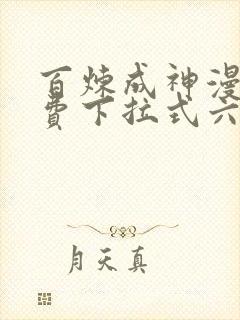 百炼成神漫
费下拉式六
月天真